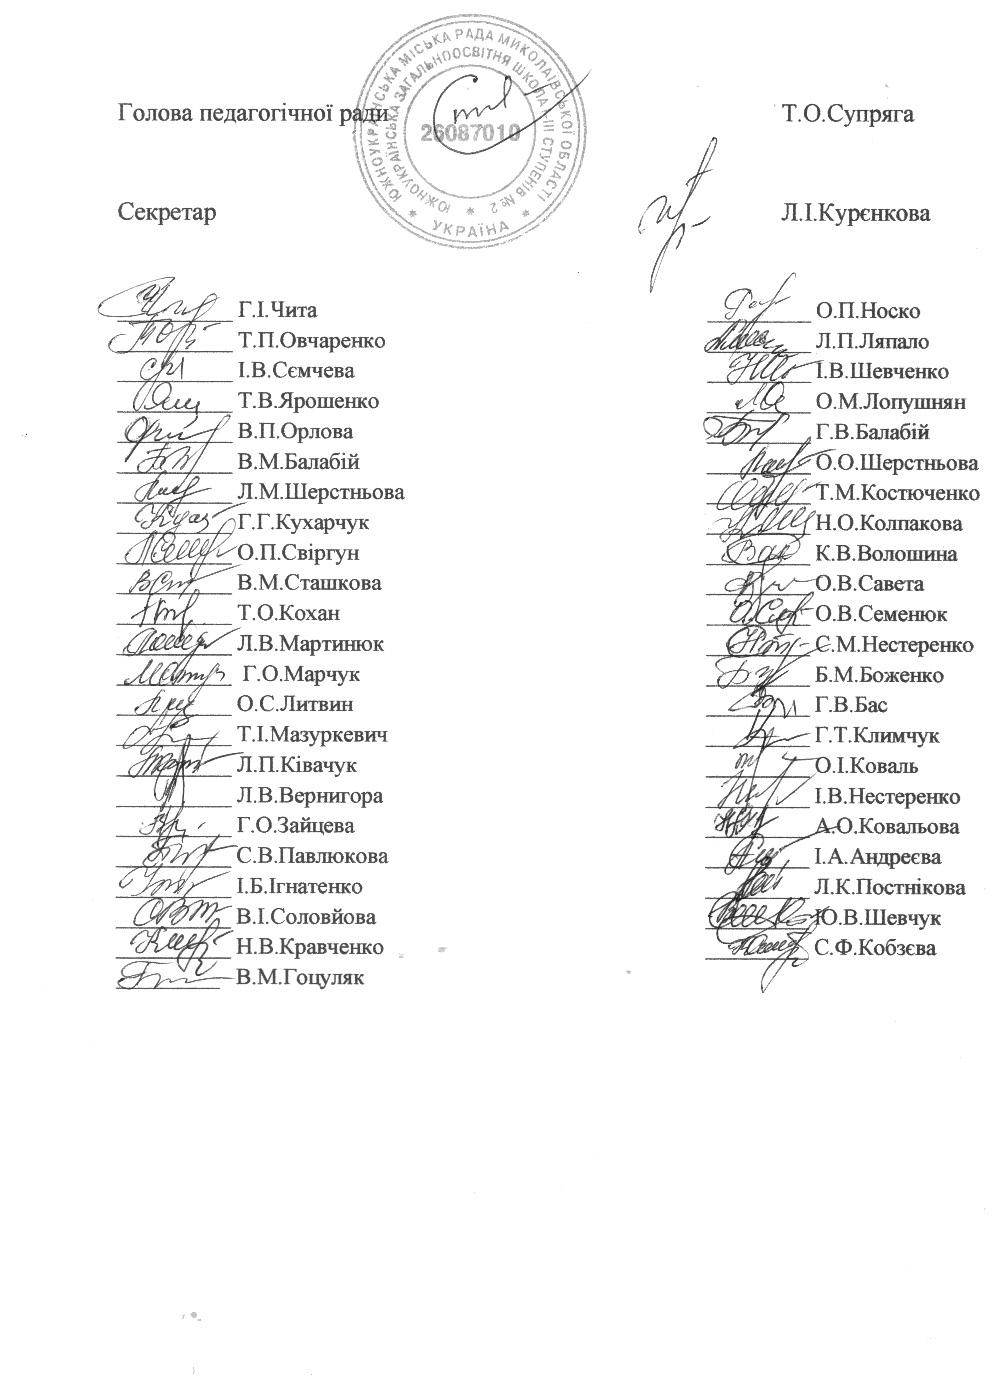 Голова педагогічної ради Т.О.Супряга
ЮЖНОУКРАЇНСЬКА МІСЬКА РАДА МИКОЛАЇВСЬКОЇ ОБЛАСТІ
ЮЖНОУКРАЇНСЬКА ЗАГАЛЬНООСВІТНЯ ШКОЛА I-III СТУПЕНІВ № 2
26087010
* УКРАЇНА *
Секретар Л.І.Курєнкова
Г.І.Чита О.П.Носко
Т.П.Овчаренко Л.П.Ляпало
І.В.Сємчева І.В.Шевченко
Т.В.Ярошенко О.М.Лопушнян
В.П.Орлова Г.В.Балабій
В.М.Балабій О.О.Шерстньова
Л.М.Шерстньова Т.М.Костюченко
Г.Г.Кухарчук Н.О.Колпакова
О.П.Свіргун К.В.Волошина
В.М.Сташкова О.В.Савета
Т.О.Кохан О.В.Семенюк
Л.В.Мартинюк С.М.Нестеренко
Г.О.Марчук Б.М.Боженко
О.С.Литвин Г.В.Бас
Т.І.Мазуркевич Г.Т.Климчук
Л.П.Ківачук О.І.Коваль
Л.В.Вернигора І.В.Нестеренко
Г.О.Зайцева А.О.Ковальова
С.В.Павлюкова І.А.Андреєва
І.Б.Ігнатенко Л.К.Постнікова
В.І.Соловйова Ю.В.Шевчук
Н.В.Кравченко С.Ф.Кобзєва
В.М.Гоцуляк